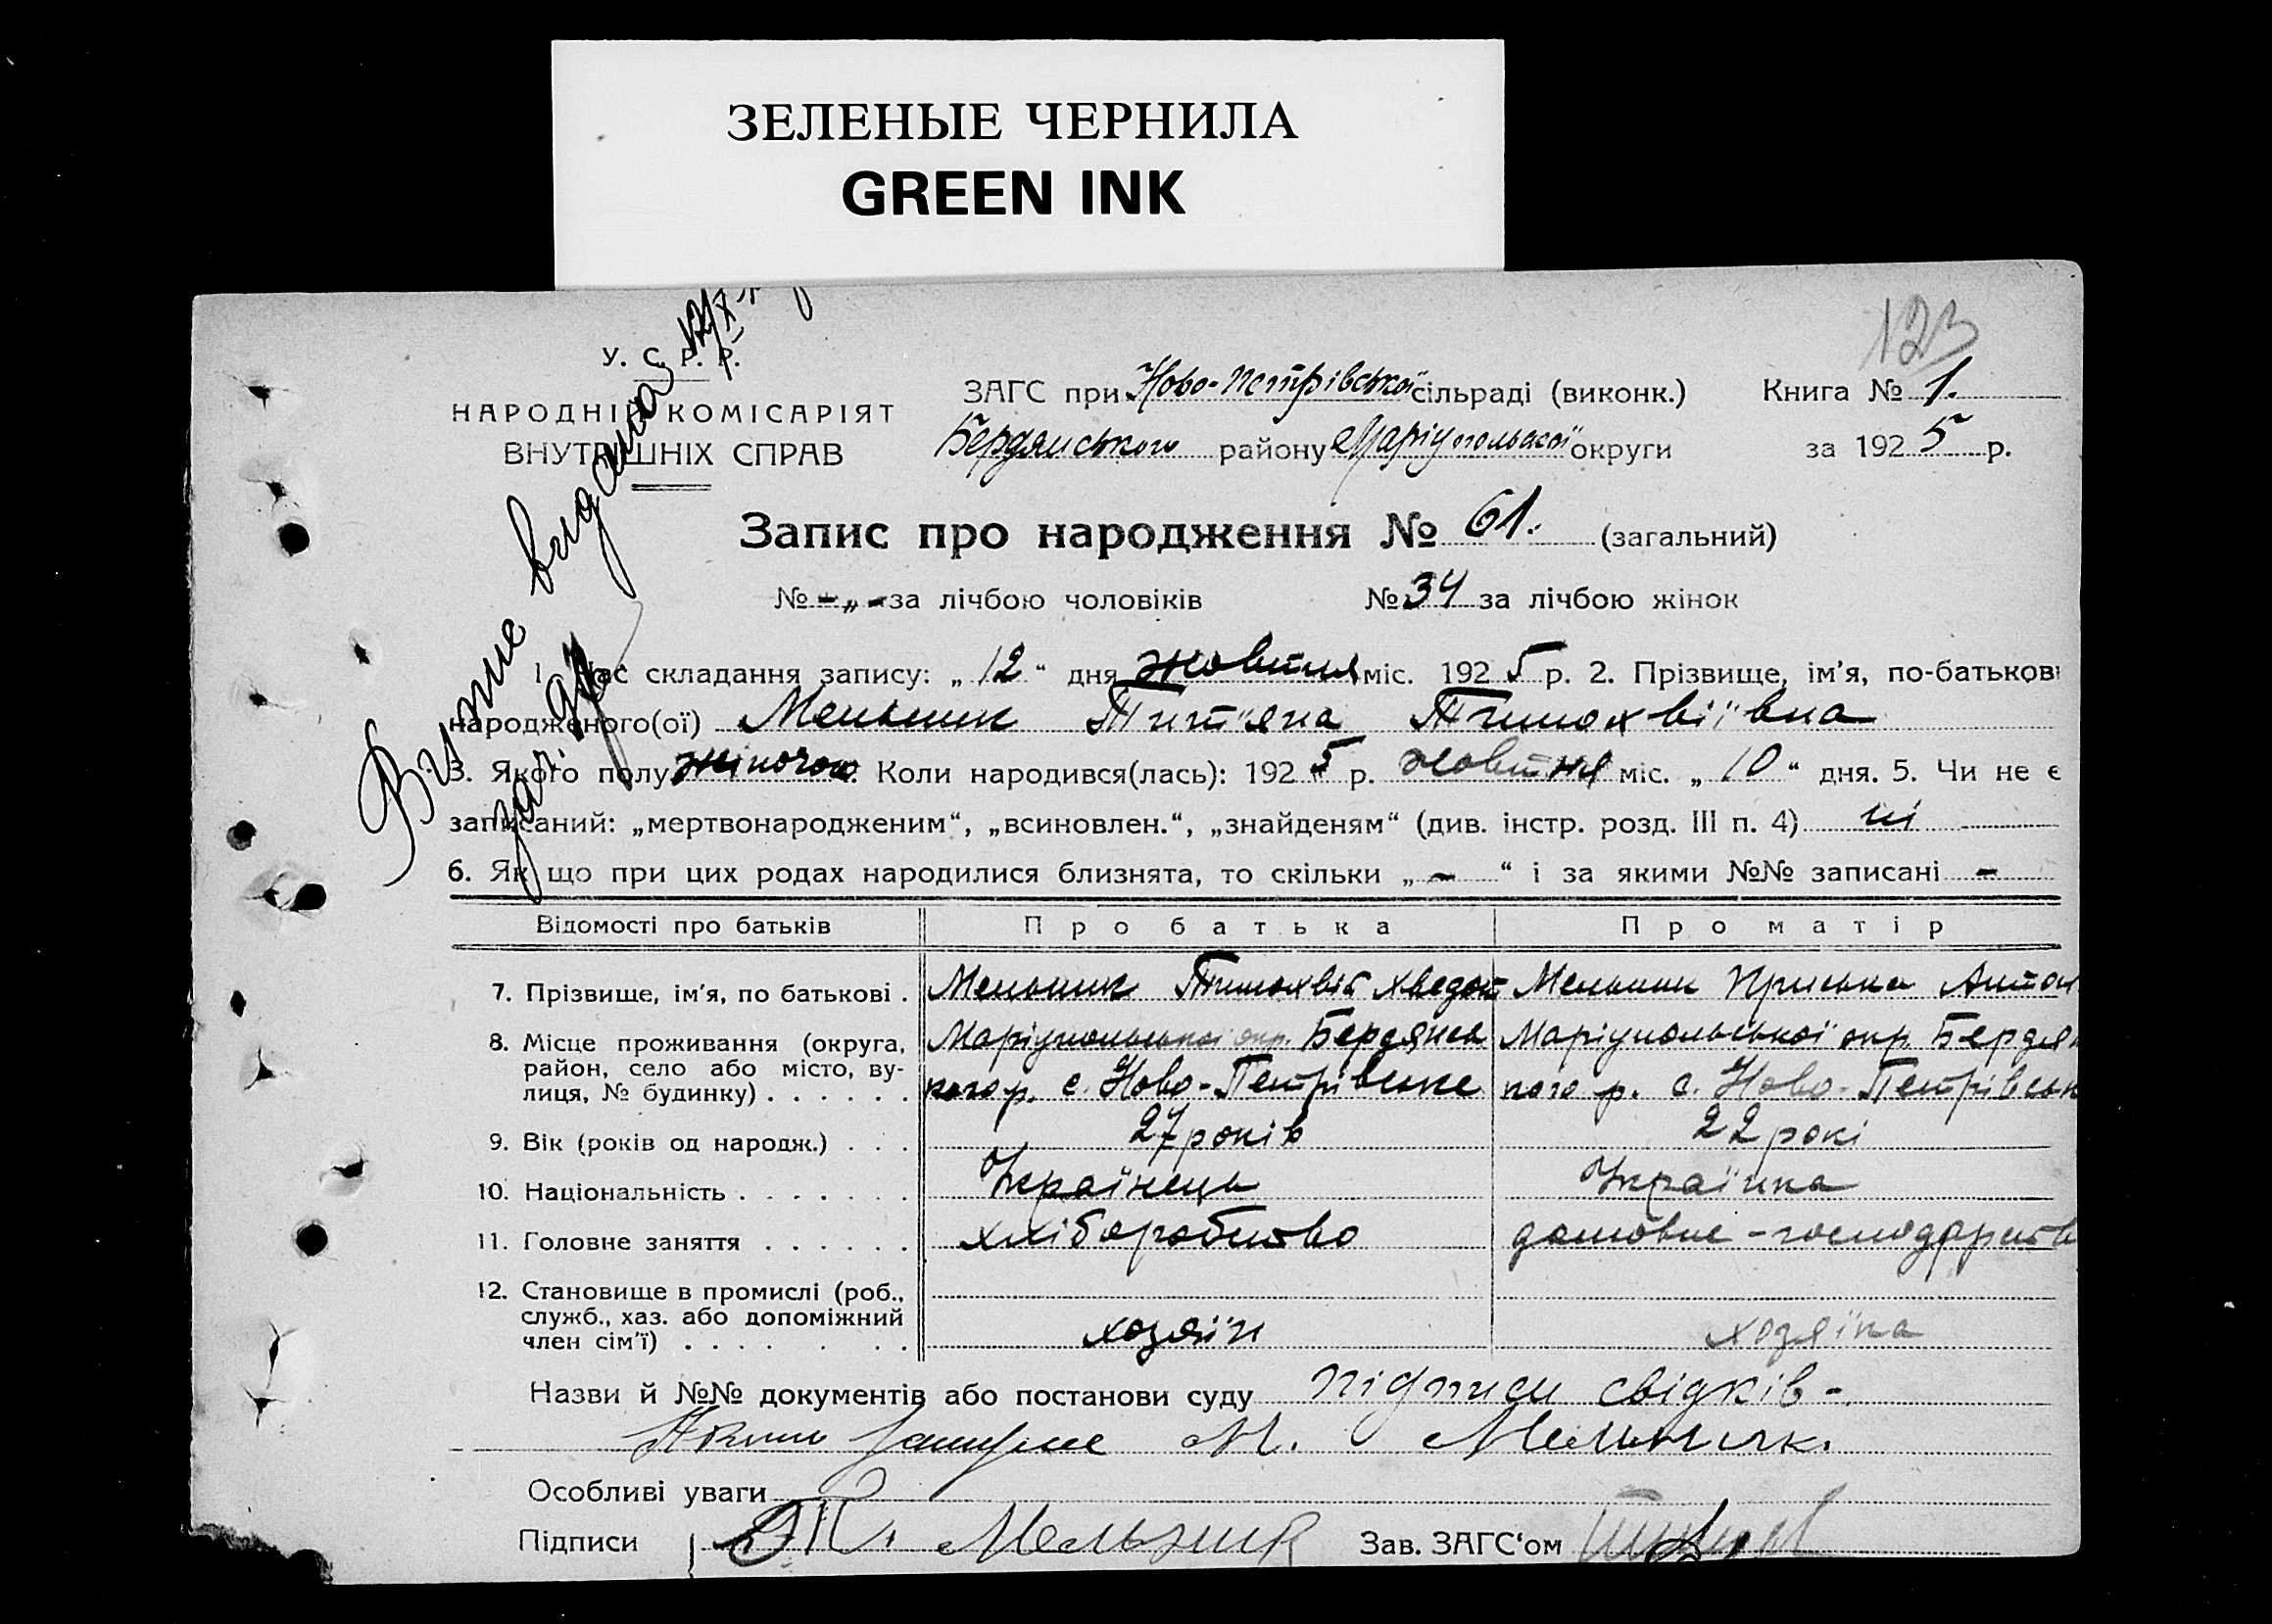 ЗЕЛЕНЫЕ ЧЕРНИЛА
GREEN INK
123
У. С. Р. Р.
НАРОДНІЙ КОМІСАРІЯТ
ВНУТРІШНІХ СПРАВ
ЗАГС при Ново-Петрівської сільраді (виконк.) Книга № 1.
Бердянського району Маріупольської округи за 1925 р.
Витие видана 12/X
Запис про народження № 61. (загальний)
№ - „ - за лічбою чоловіків № 34 за лічбою жінок
1. Час складання запису: „ 12 “ дня жовтня міс. 1925 р. 2. Прізвище, ім’я, по-батькові
народженого(ої) Мельник Тит'яна Тимохвіївна
3. Якого полу жіночою. Коли народився(лась): 1925 р. жовтня міс. „ 10 “ дня. 5. Чи не є
записаний: „мертвонародженим“, „всиновлен.“, „знайденям“ (див. інстр. розд. III п. 4) ні
6. Як що при цих родах народилися близнята, то скільки „ - “ і за якими №№ записані -
Відомості про батьків Про батька Про матір
7. Прізвище, ім’я, по батькові . Мельник Тимохвій Хведот Мельник Приська Антон
8. Місце проживання (округа, Маріупольської окр. Бердянсь Маріупольської окр. Бердян
район, село або місто, ву-
лиця, № будинку) . . . . . . кого р. с. Ново-Петрівське кого р. с. Ново-Петрівськ
9. Вік (років од народж.) . . . 27 років 22 рокі
10. Національність . . . . . . . Українець Українка
11. Головне заняття . . . . . . хліборобство домовне-господарств
12. Становище в промислі (роб.,
служб., хаз. або допоміжний
член сім’ї) . . . . . . . хозяїн хозяїка
Назви й №№ документів або постанови суду підписи свідків -.
М. Мельник.
Особливі уваги
Підписи Т. Мельник Зав. ЗАГС‘ом